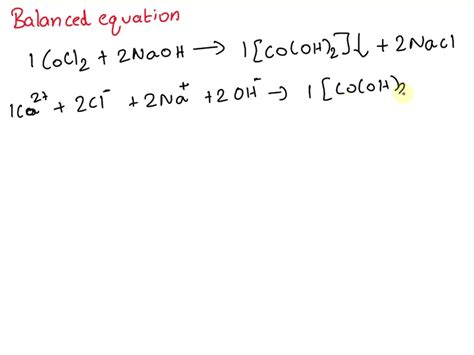 Balanced equation
1 CoCl₂ + 2NaOH → 1[Co(OH)₂]↓ + 2NaCl
1Co²⁺ + 2Cl⁻ + 2Na⁺ + 2OH⁻ → 1[Co(OH)₂